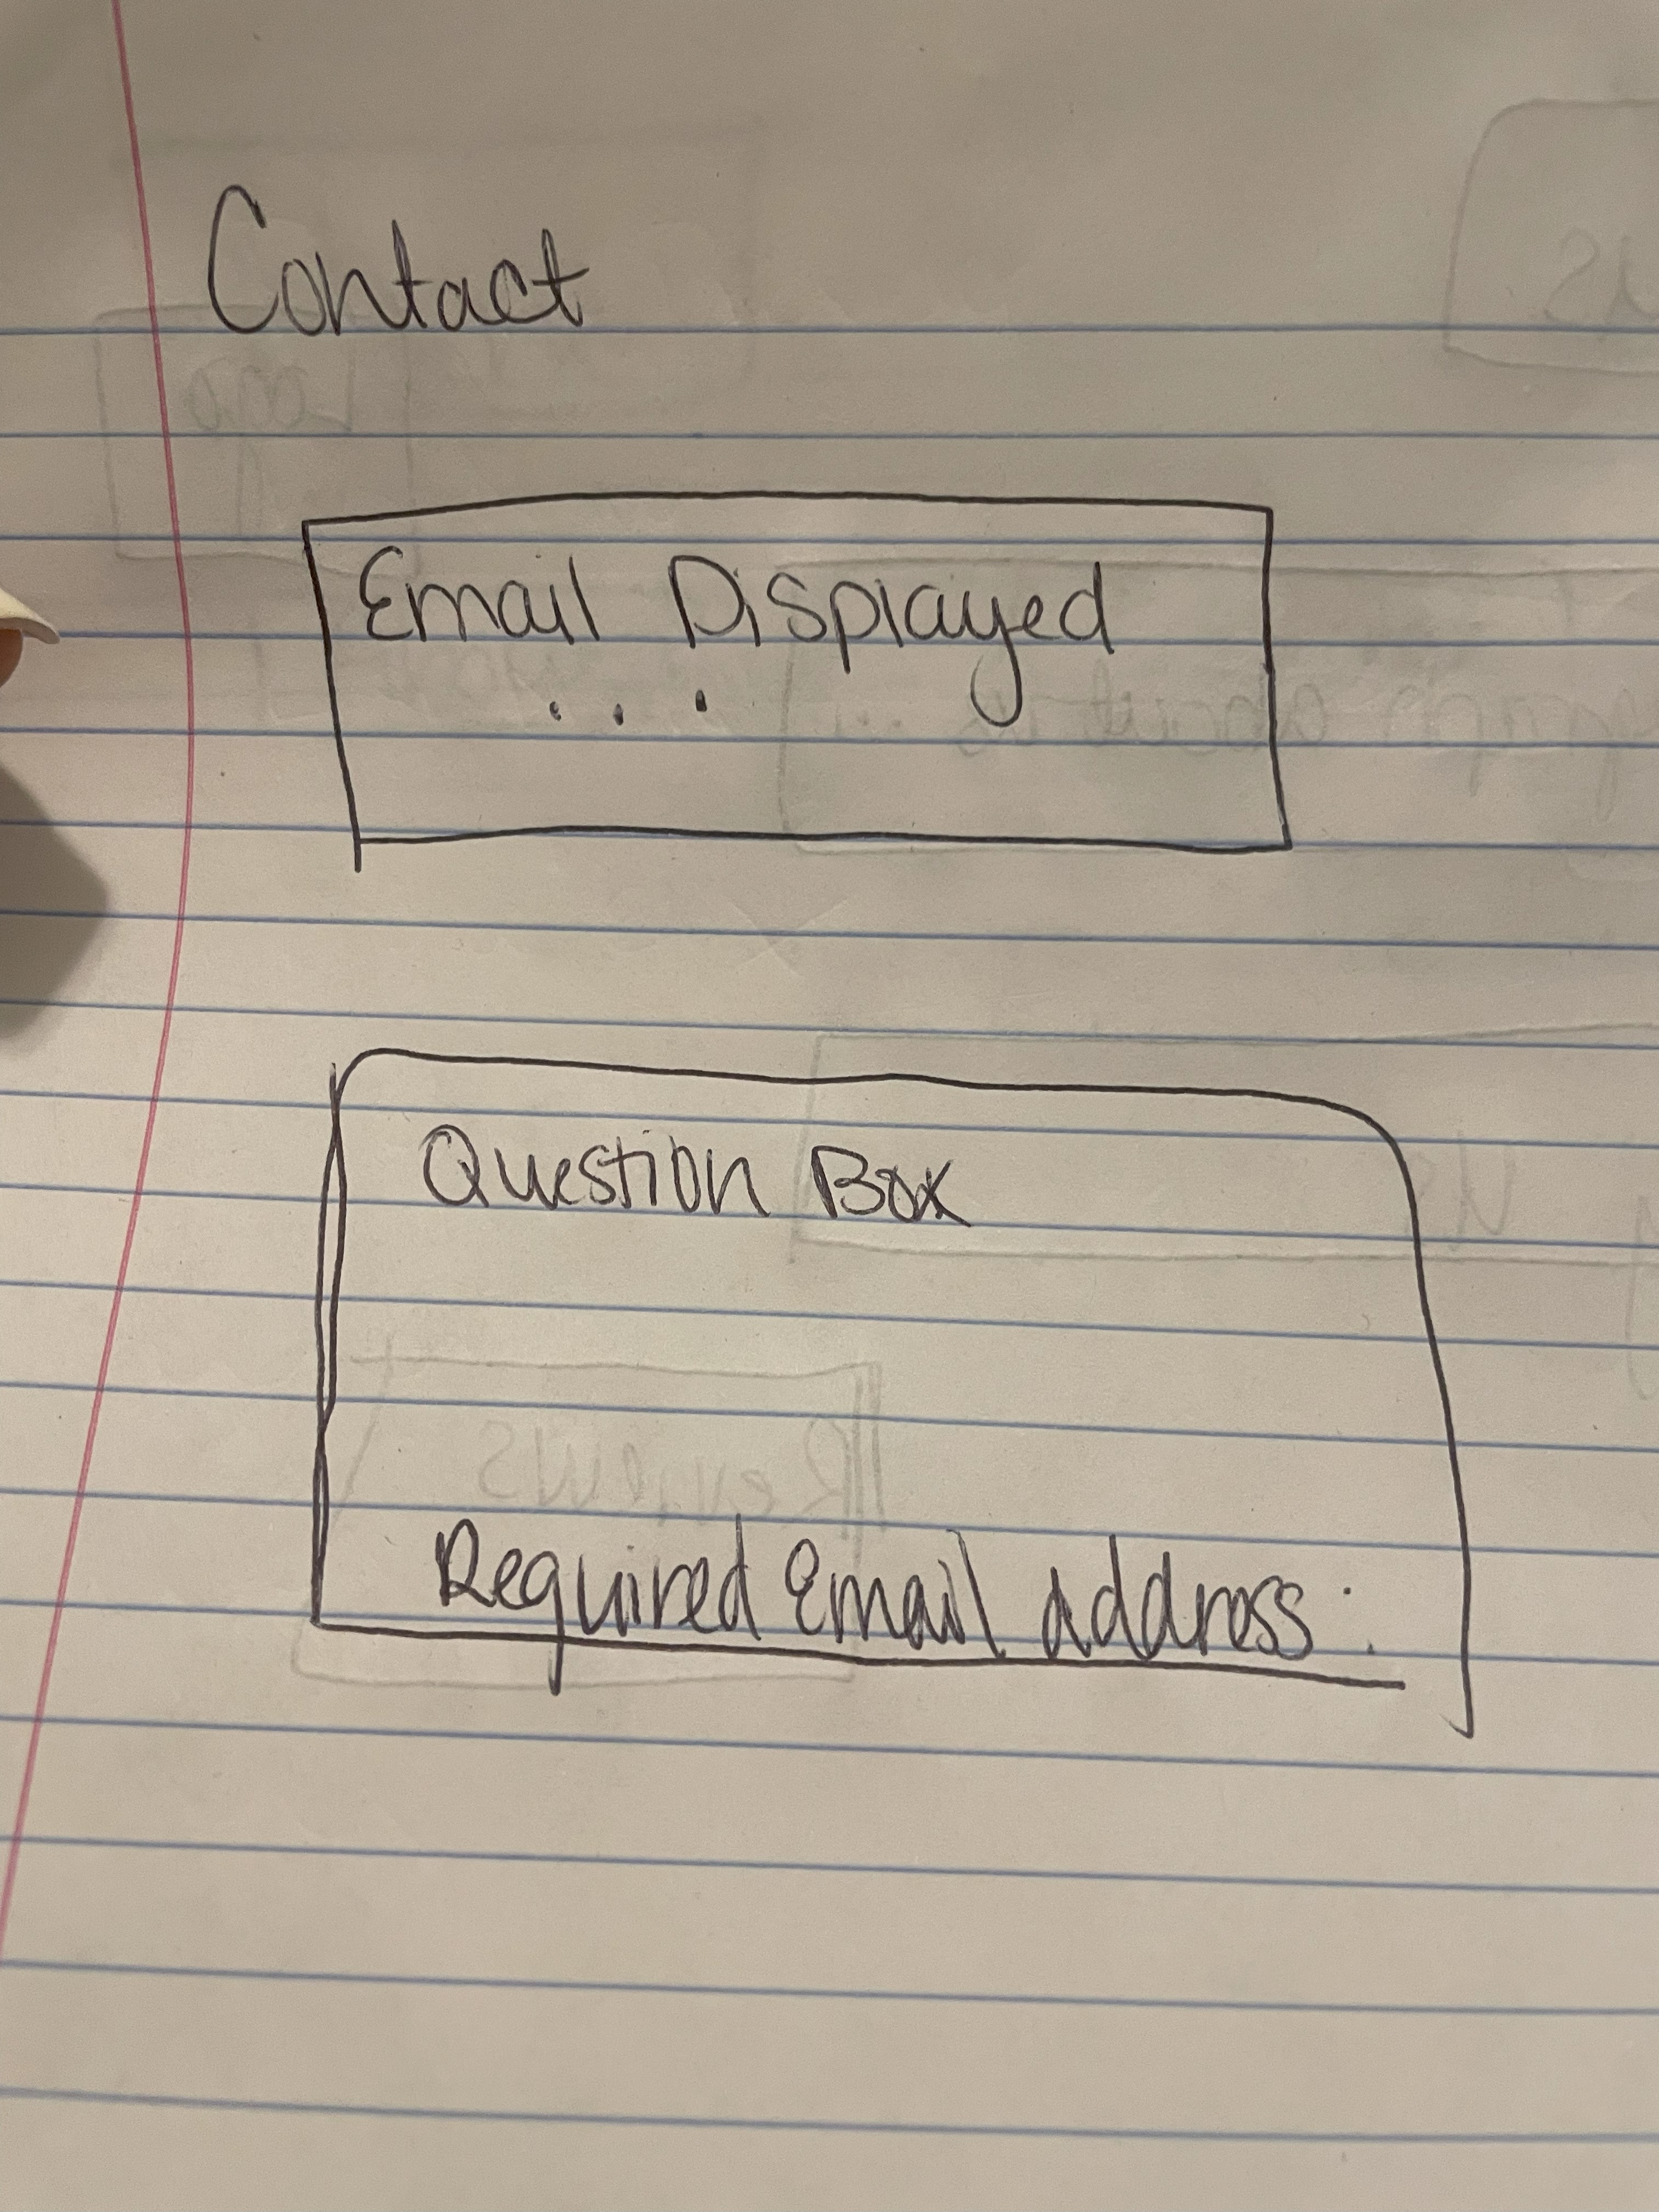 Contact
Email Displayed
...
Question Box
Required Email address: